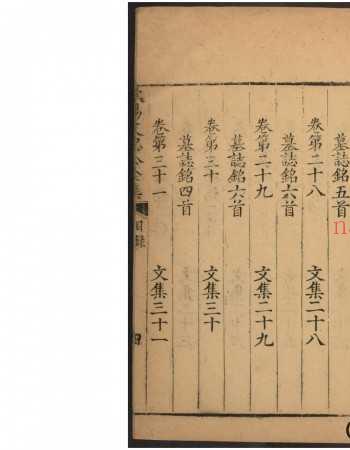 墓誌銘五首
卷第二十八 文集二十八
墓誌銘六首
卷第二十九 文集二十九
墓誌銘六首
卷第三十 文集三十
墓誌銘四首
卷第三十一 文集三十一
目錄 四